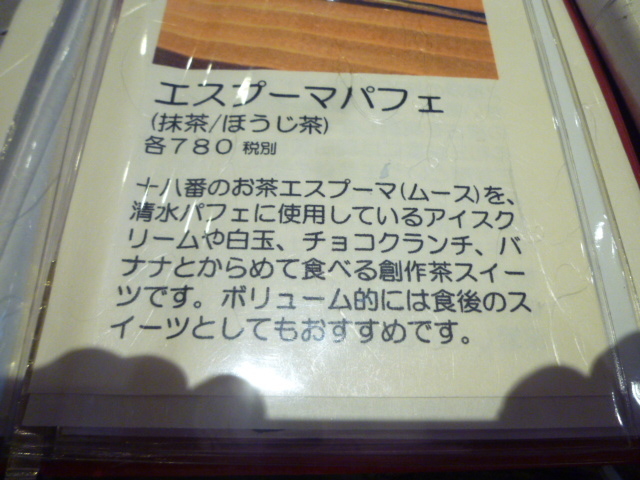 エスプーマパフェ
(抹茶/ほうじ茶)
各780 税別
十八番のお茶エスプーマ(ムース)を、
清水パフェに使用しているアイスク
リームや白玉、チョコクランチ、バ
ナナとからめて食べる創作茶スイー
ツです。ボリューム的には食後のス
イーツとしてもおすすめです。